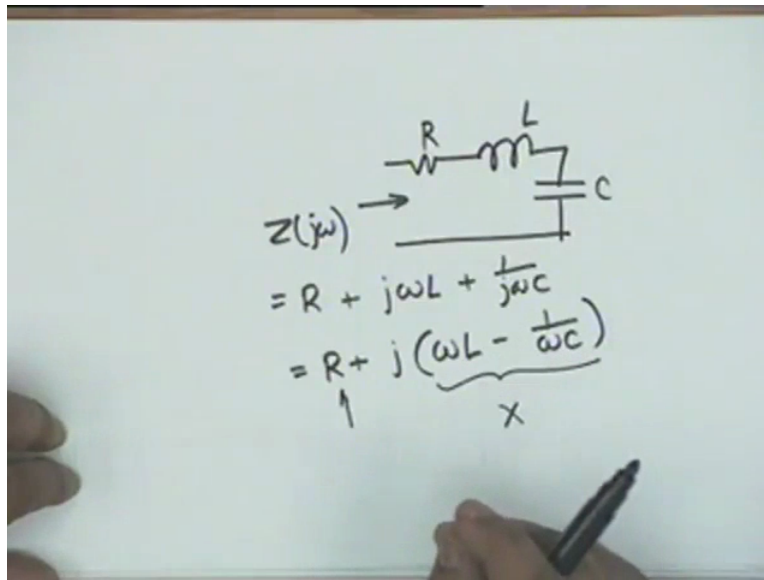 R L
C
Z(jω)
= R + jωL + 1/jωC
= R + j (ωL - 1/ωC)
X